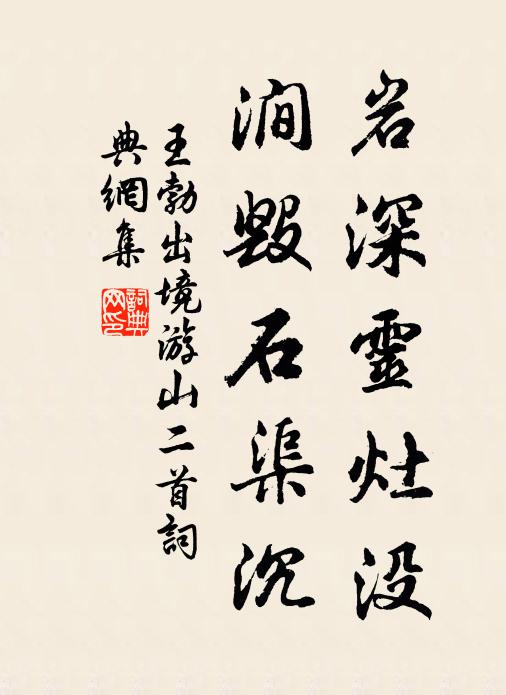 岩深靈灶没
澗毀石渠沉
王勃出境游山二首詞
典網集
詞典網印